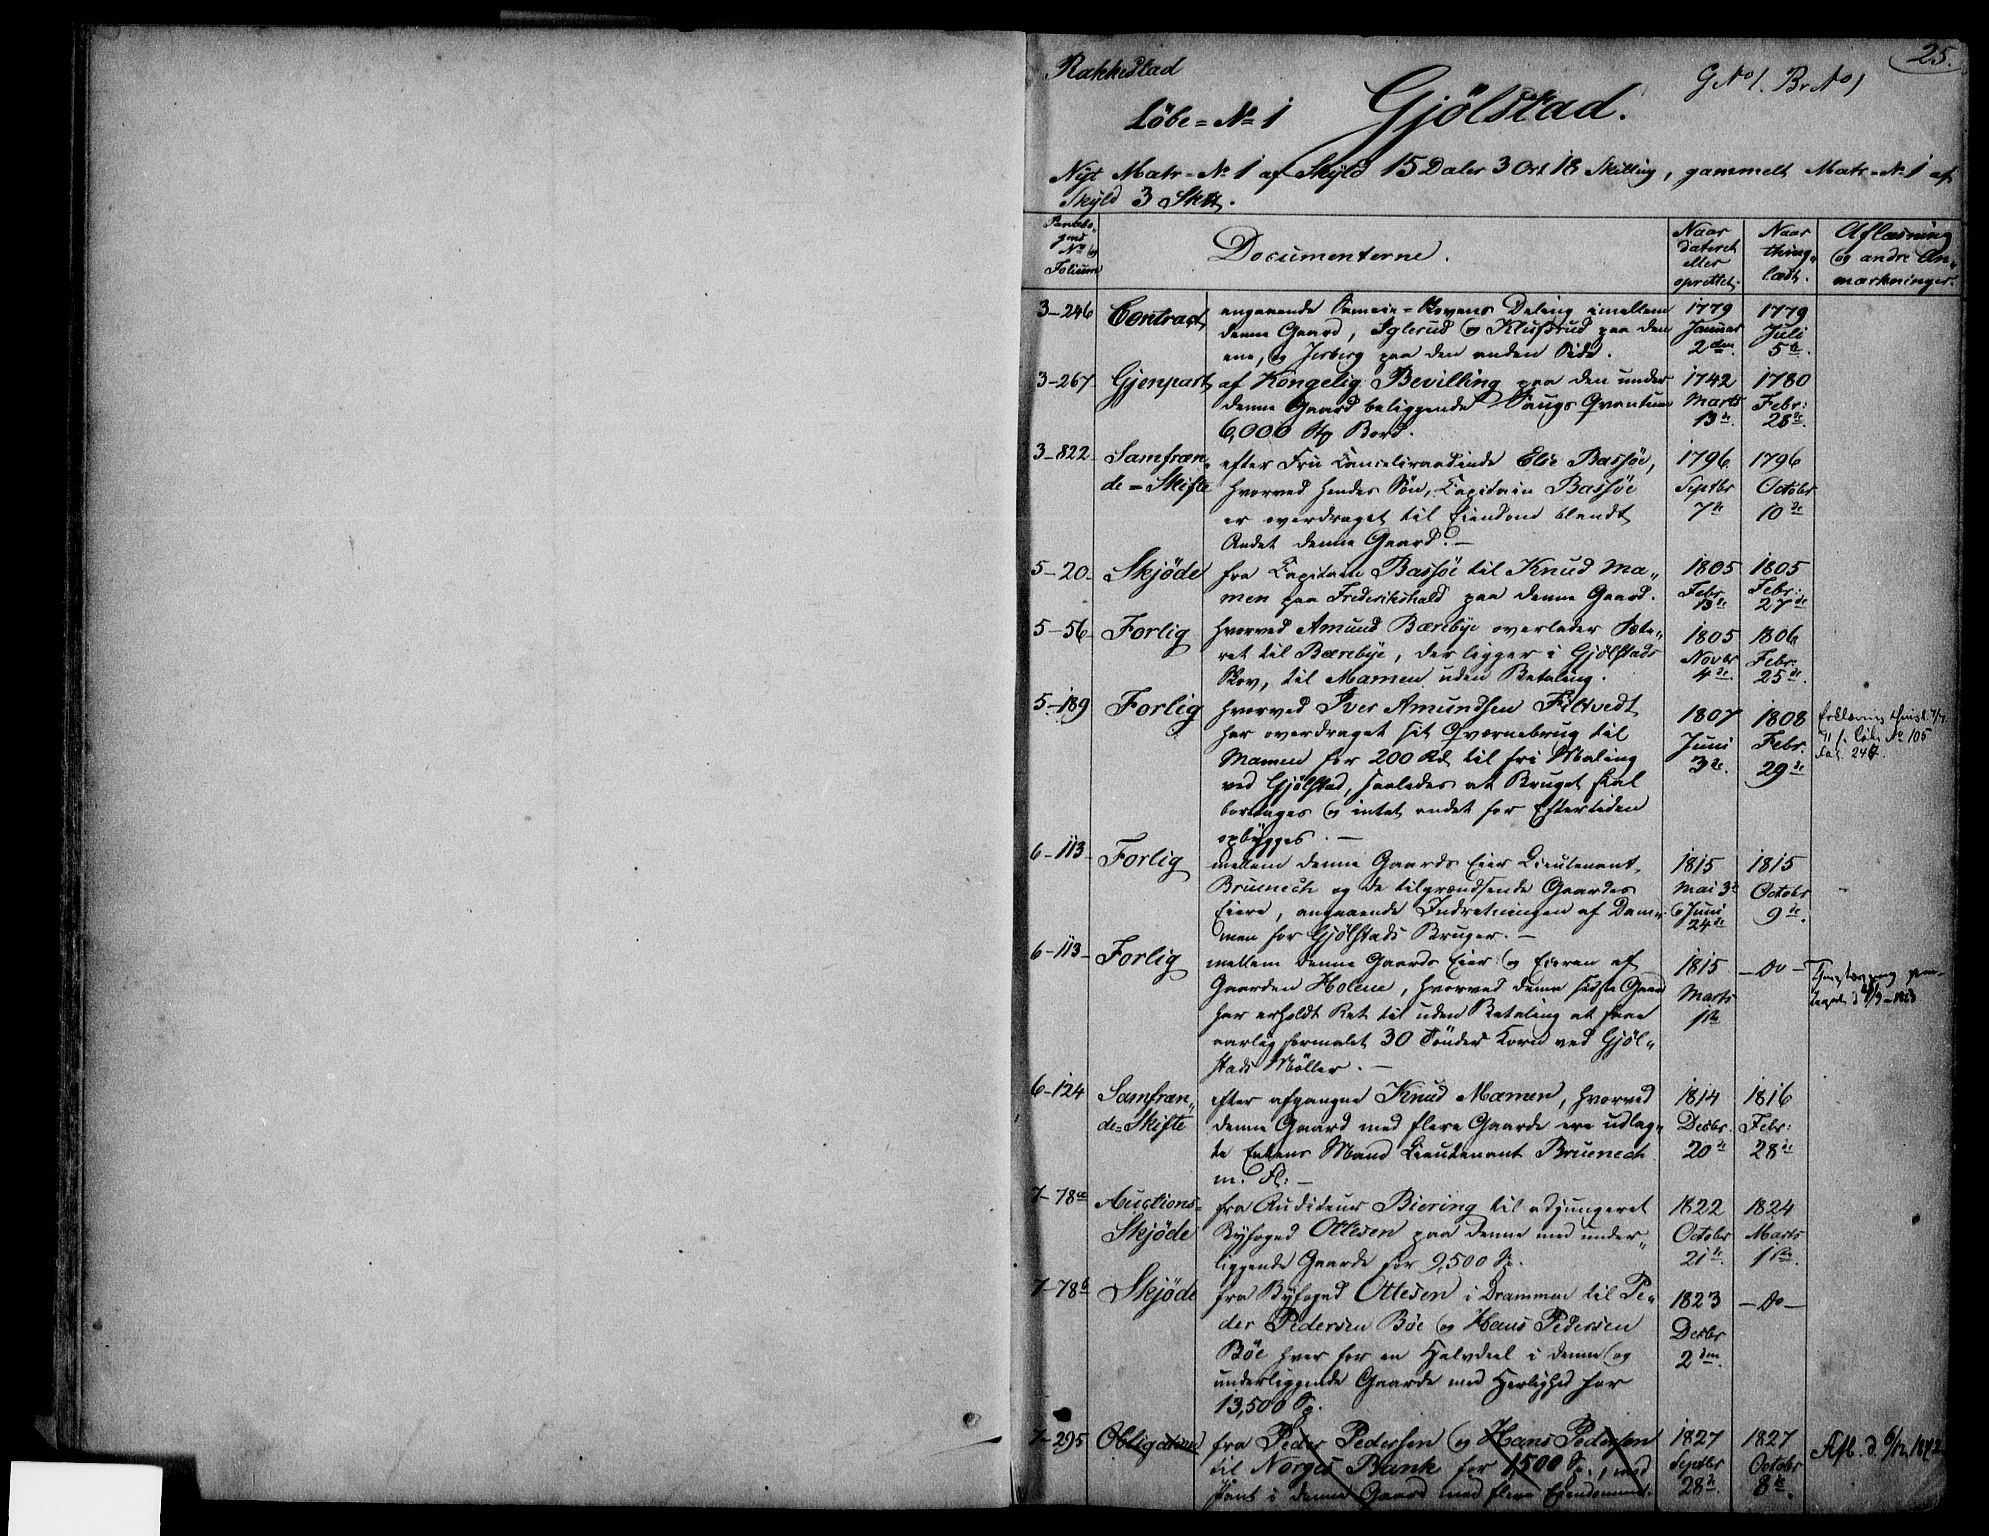 25.
Rakkestad
G No 1. Br No 1
Löbe=No 1 Gjölstad.
Nyt Matr=No 1 af Skyld 15 Daler 3 Ort 18 Skilling, gammelt Matr=No 1 af
Skyld 3 Sk℔.
Pantebo-
gens
No og
Folium
Documenterne.
Naar
dateret
eller
oprettet.
Naar
thing-
læst.
Aflæsning
og andre An-
mærkninger.
3-246 Contract angaaende Sameie=Skovens Deling imellem 1779 1779
denne Gaard, Iglerud og Klufsrud paa den Januar Juli
ene, og Jerberg paa den anden Side. 2den. 5te.
3-267 Gjenpart af Kongelig Bevilling paa den under 1742 1780
denne Gaard beliggende Saugs Qvantum Marts Febr:
6,000 Stp Bord. 13de. 28de.
3-822 Samfræn- efter Fru Cancelliraadinde Else Bassöe, 1796 1796
de=Skifte hvorved hendes Søn, Capitain Bassöe Septbr October
er overdraget til Eiendom blandt 7de 10de
Andet denne Gaard.-
5-20 Skjöde fra Capitain Bassöe til Knud Ma- 1805 1805
men paa Frederikshald paa denne Gaard. Febr. 13de Febr: 27de
5-56 Forlig hvorved Amund Bærebye overlader Sæte- 1805 1806
ret til Bærebye, der ligger i Gjölstads Novbr Febr.
Skov, til Mamen uden Betaling. 4de. 25de.
5-189 Forlig hvorved Iver Amundsen Filtvedt 1807 1808
har overdraget sit Qværnebrug til Juni Febr.
Mamen for 200 Rd. til fri Maling 3de. 29de
ved Gjölstad, saaledes at Bruget skal
borttages og intet andet for Eftertiden
opbygges.-
Löbe No 105
6-113 Forlig mellem denne Gaards Eier Lieutenant 1815 1815
Bruenech og de tilgrændsende Gaardes Mai 3de October
Eiere, angaaende Indretningen af Dam- og Juni 9de.
men for Gjölstads Bruger.- 24de
6-113 Forlig mellem denne Gaards Eier og Eieren af 1815 -do-
Gaarden Holene, hvorved denne sidste Gaard Marts
har erholdt Ret til uden Betaling at faae 1ste
aarlig formalet 30 Tönder Korn ved Gjöl-
stads Möller.-
6-124 Samfræn- efter afgangne Knud Mamen, hvorved 1814 1816
de=Skifte denne Gaard med flere Gaarde ere udlag- Decbr. Febr:
te Enkens Mand Lieutenant Bruenech 20de 28de
m. Fl:-
7-78a Auctions- fra Auditeur Biering til adjungeret 1822 1824
Skjöde Byfoged Ottesen paa denne med under- October Marts
liggende Gaarde for 9,500 Sp. 21de. 1ste.
7-78b Skjöde fra Byfoged Ottesen i Drammen til Pe- 1823 -do-
der Pedersen Böe og Hans Pedersen Decbr
Böe hver for en Halvdeel i denne og 2den.
underliggende Gaarde med Herlighed for
13,500 Sp.
7-295 Obligation fra Peder Pedersen og Hans Pedersen 1827 1827
til Norges Bank for 1500 Sp., med Septbr October
Pant i denne Gaard med flere Eiendomme. 28de. 8de.
Afl. d. 6/12 1842